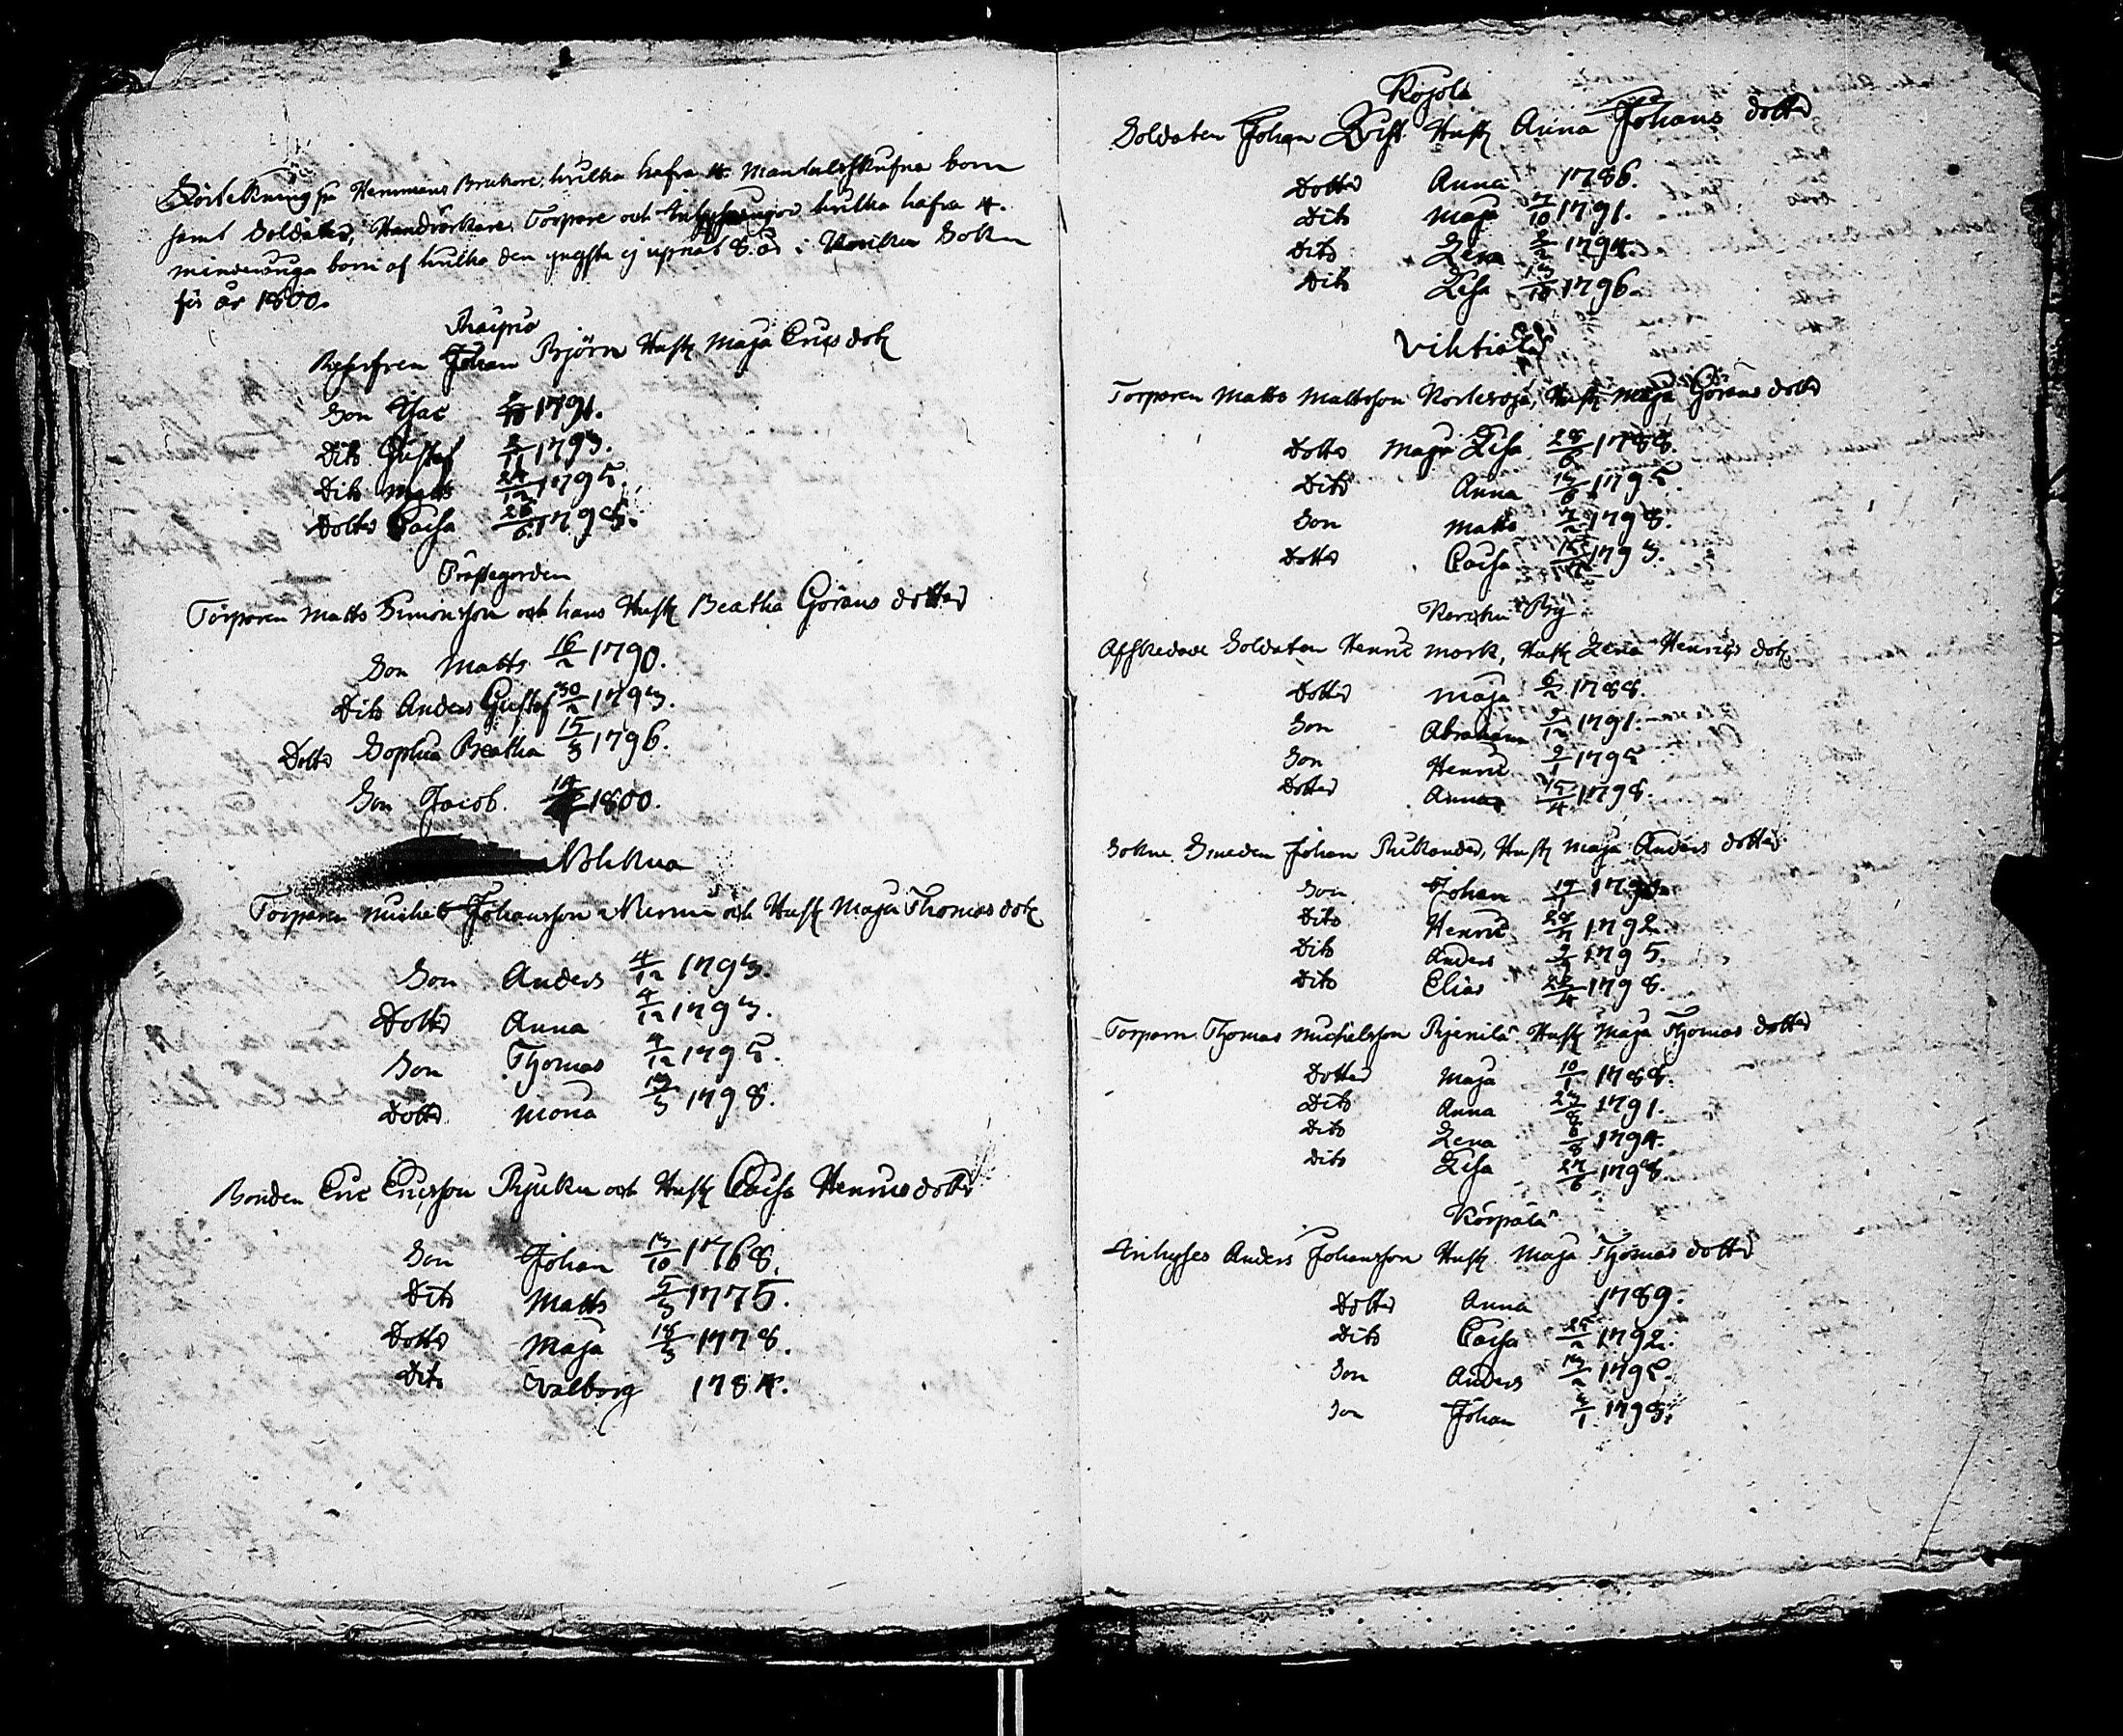 Förtekning på Hemmans Brukare, hvilka hafva 4. Mandalsskrifna barn
samt Soldater, Handtvärkare, Torpare och hvilka hafva 4.
minderåriga barn af hvilka den yngsta ej upnåt 8. år i Socken
för år 1800.
Johan Björn Hust Maja Erics dotr
Son Isac 1791.
Dito Gustaf 2/11 1793.
Dito Matts 24/12 1795.
Dotter Caisa 26/6 1798.
Prästegården
Torparen Matts Simonsson och hans Hust Beatha Görans dotter
Son Matts 16/2 1790.
Dito Anders Gustaf 30/2 1793.
Dotter Sophia Beatha 15/3 1796.
Son Jacob. 1800.
Torparen Michel Johansson och Hust Maja Thomas dotr
Son Anders 4/12 1793.
Dotter Anna 4/12 1793.
Son Thomas 4/12 1795.
Dotter Mona 13/3 1798.
Bonden Eric Ericsson och Hust Caisa Henrics dotter
Son Johan 13/10 1768.
Dito Matts 5/3 1775.
Dotter Maja 18/3 1778.
Dito Valborg 1784.
Kojola
Soldaten Johan Qvist Hust Anna Johans dotter
Dotter Anna 1786.
Dito Maja 1791.
Dito Lena 1794.
Dito Lisa 1796.
Torparen Matts Mattsson Hust Maja Görans dotter
Dotter Maja Lisa 28/6 1788.
Dito Anna 13/6 1795.
Son Matts 7/2 1798.
Dotter Caisa 1793.
By
Afskedade Soldaten Henric Mork, Hust Lena Henrics dotr
Dotter Maja 6/2 1788.
Son Abraham 9/12 1791.
Son Henric 9/1 1795
Dotter Anna 15/4 1798.
Sokne Smeden Johan Hust Maja Anders dotter
Son Johan
Dito Henric 1792.
Dito Anders 1795.
Dito Elias 22/4 1798.
Torparn Thomas Michelsson Hust Maja Thomas dotter
Dotter Maja 10/1 1788.
Dito Anna 23/8 1791.
Dito Lena 1794.
Dito Lisa 27/6 1798.
Inhyses Anders Johansson Hust Maja Thomas dotter
Dotter Anna 1789.
Dito Caisa 1792.
Son Anders 13/2 1795.
Son Johan 1798.